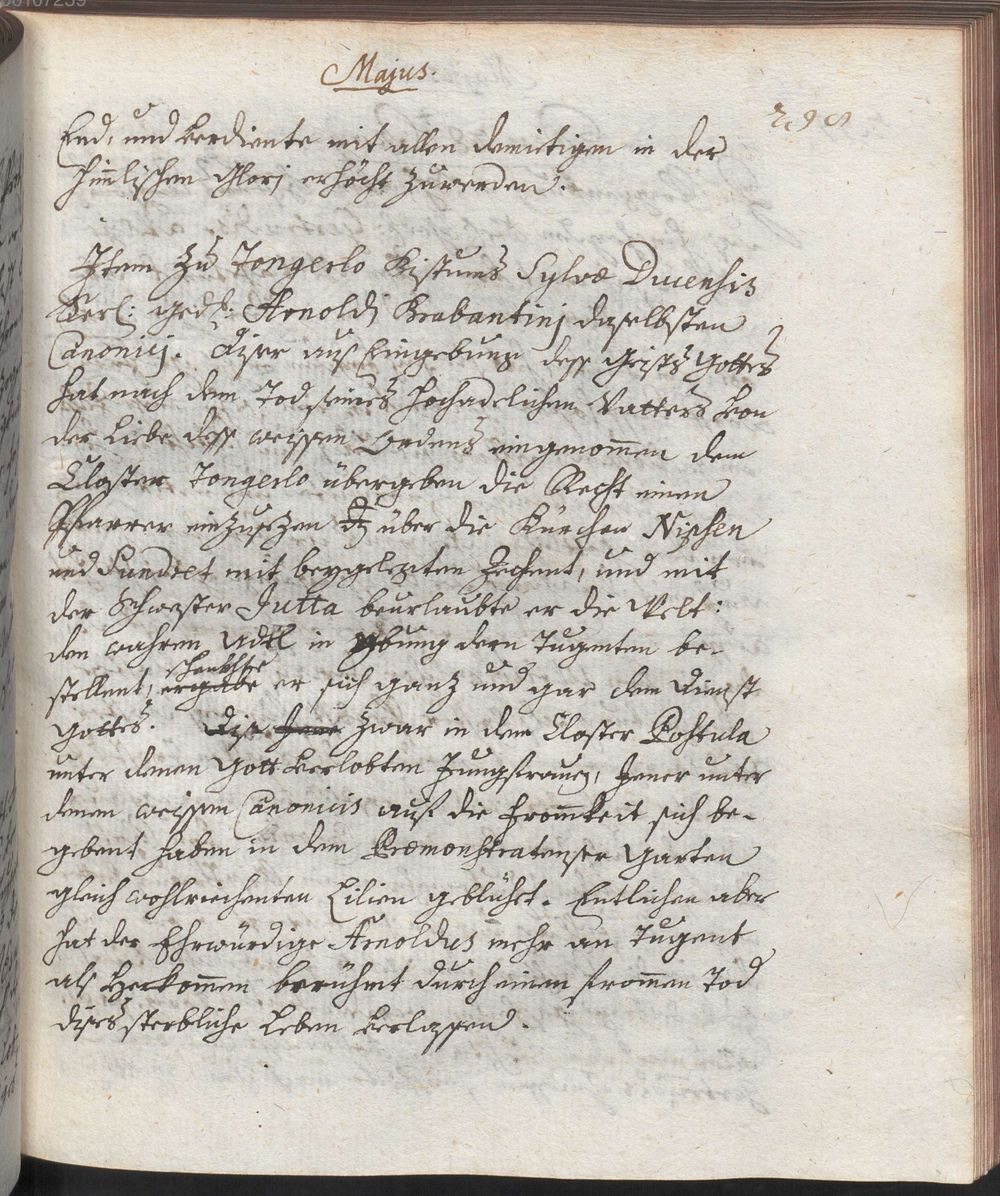 Majus.
End, und verdiente mit allen demietigen in der
himlischen Glorj erhöcht zuwerden.
Item zu Tongerlo Bistums Sylvæ Ducensis
Sel: gedß: Arnoldj Brabantinj daselbsten
Canonicj. Diser auß Eingebung deß Geists Gottes
hat nach dem Tod seines hochadelichen Vatters von
der Liebe deß weissen Ordens eingenomen dem
Closter Tongerlo übergeben die Recht einen
Pfarrer einzusezen über die Kürchen Nipsen
und Sundert mit beygelegten Zechent, und mit
der Schwester Jutta beurlaubte er die Welt:
den wahren Adel in ybung dern Tugenten be-
stellent, schenckhte er sich ganz und gar dem Dienst
Gottes. Dise zwar in dem Closter Postula
unter denen Gott verlobten Jungfrauen, Jener unter
denen weissen Canonicis auf die Fromkeit sich be-
gebent haben in dem Præmonstratenser Garten
gleich wohlriechenten Lilien geblühet. Entlichen aber
hat der Ehrwürdige Arnoldus mehr an Tugent
als Herkomen berühmt durch einen fromen Tod
dises sterbliche Leben verlassen.